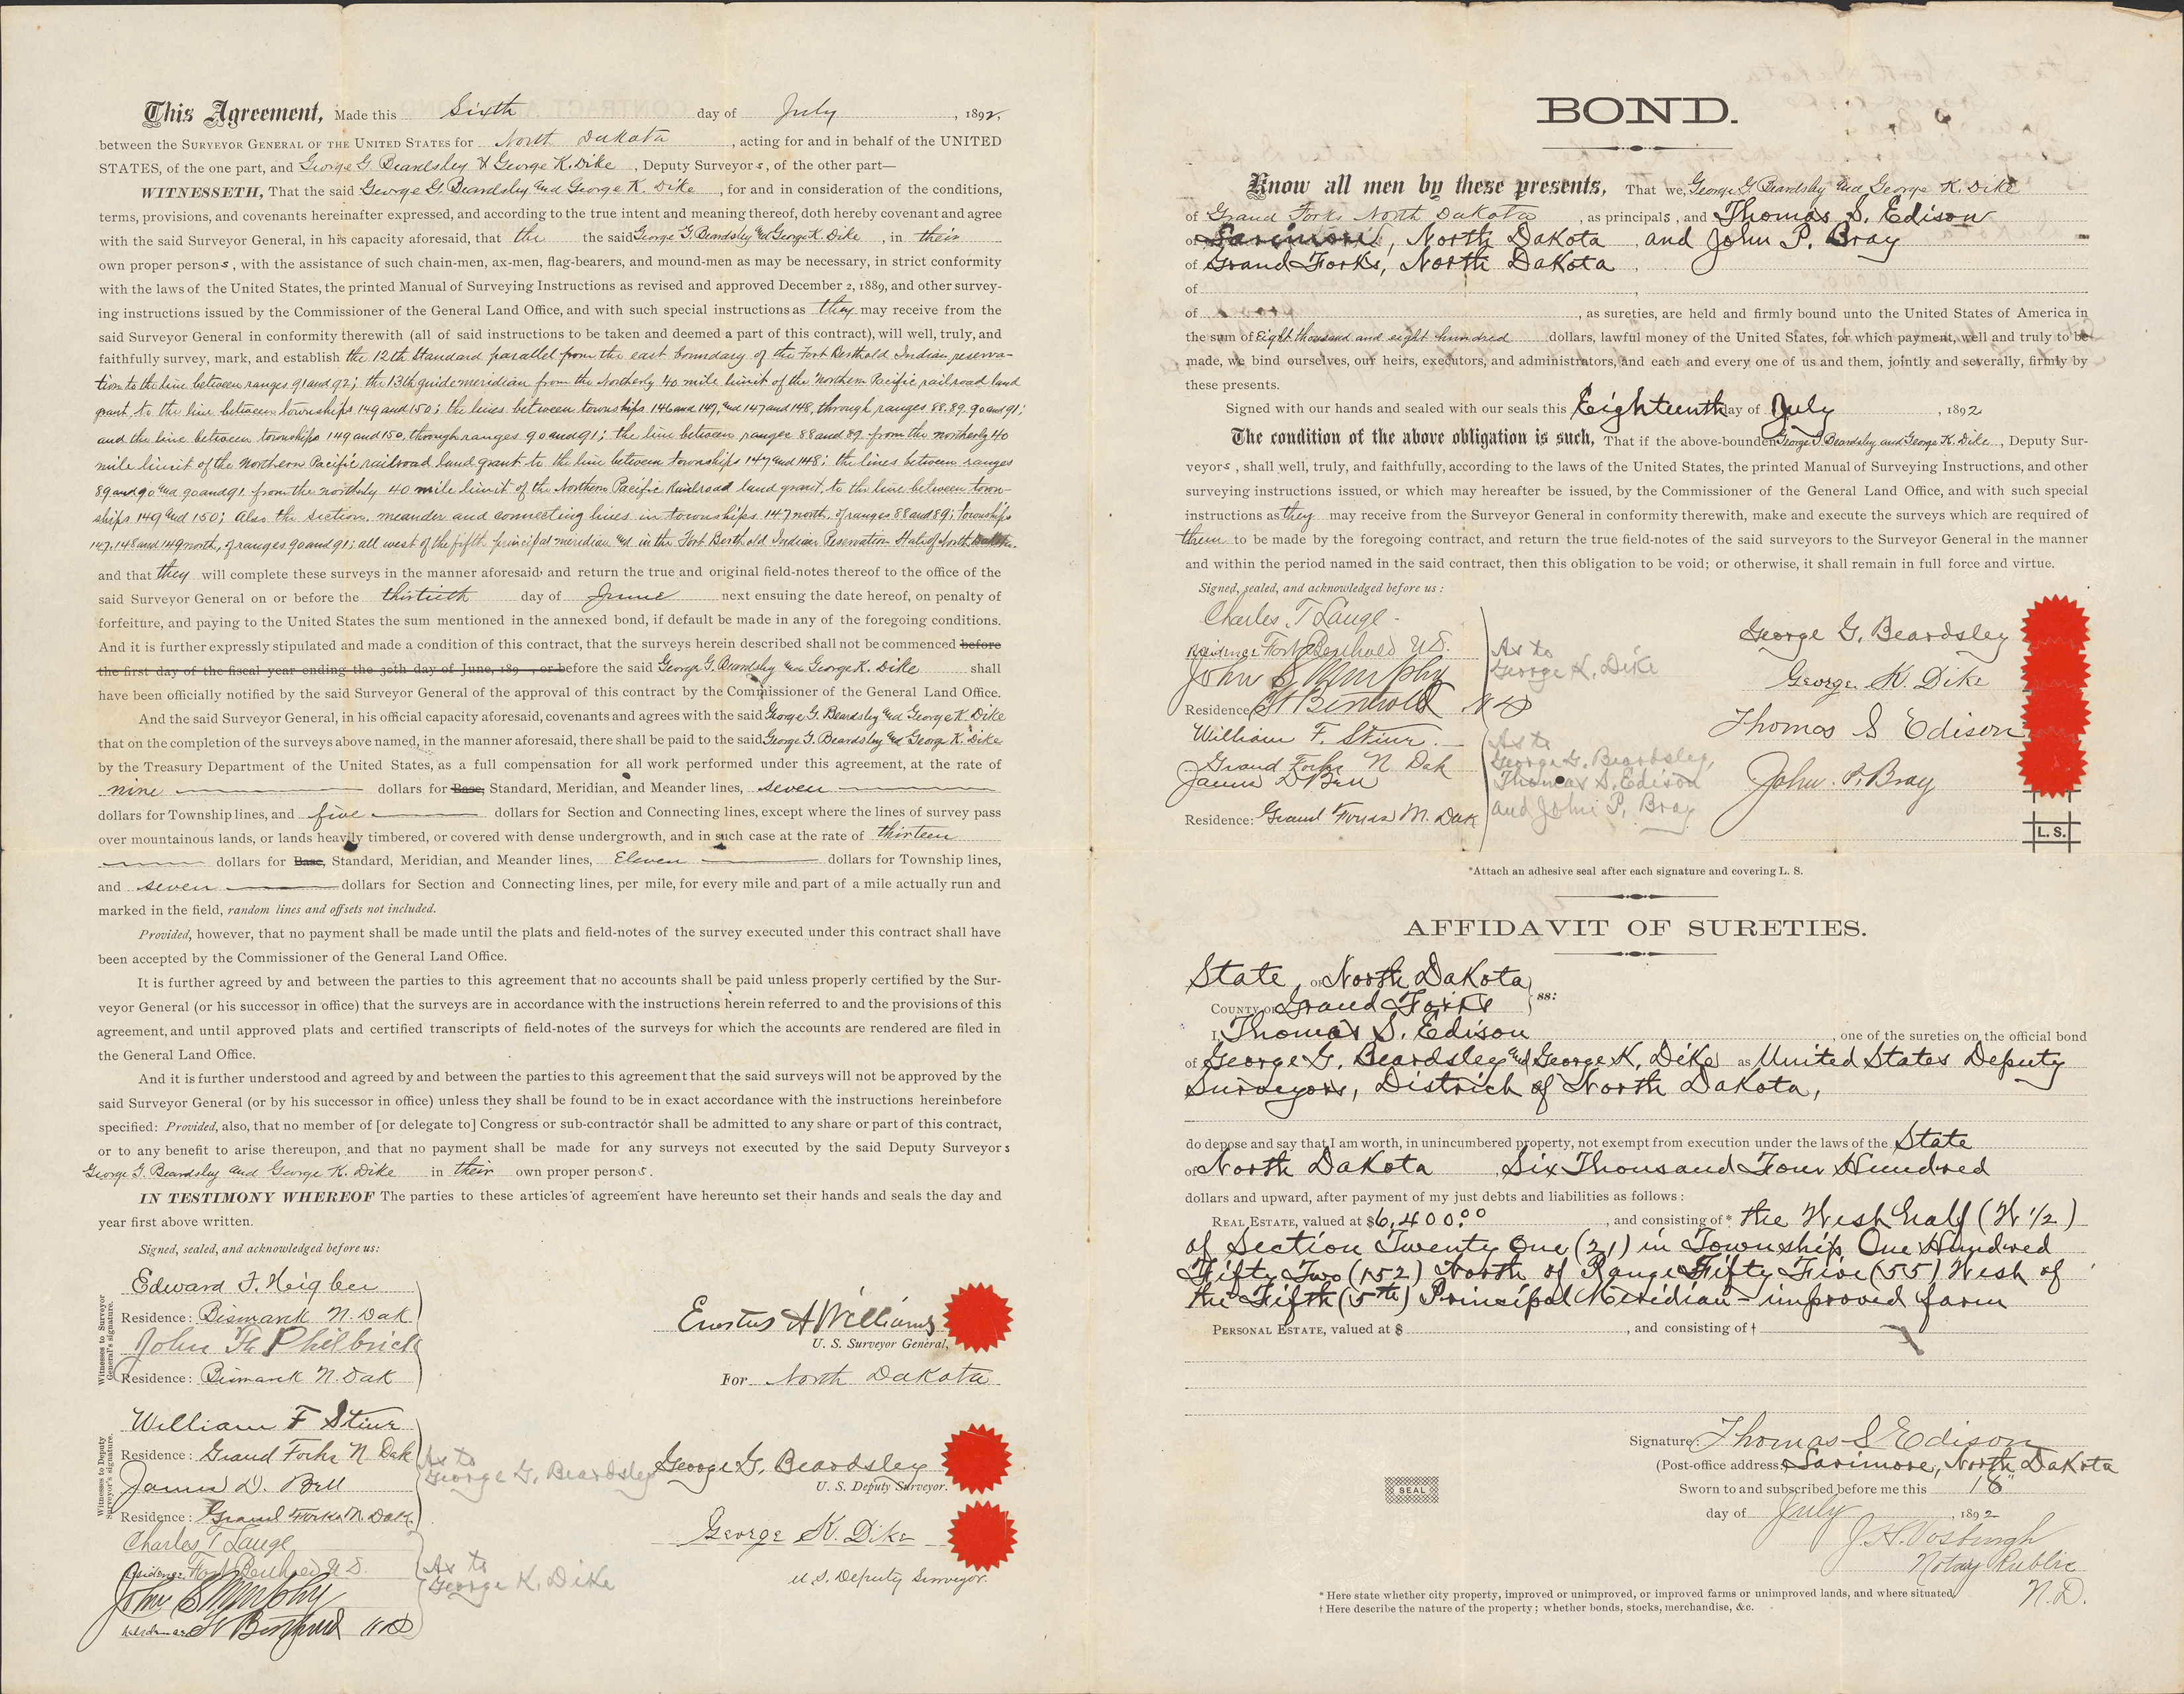 This Agreement, Made this Sixth day of July, 1892,
between the SURVEYOR GENERAL OF THE UNITED STATES for North Dakota, acting for and in behalf of the UNITED
STATES, of the one part, and George G. Beardsley & George K. Dike, Deputy Surveyors, of the other part—
WITNESSETH, That the said George G. Beardsley and George K. Dike, for and in consideration of the conditions,
terms, provisions, and covenants hereinafter expressed, and according to the true intent and meaning thereof, doth hereby covenant and agree
with the said Surveyor General, in his capacity aforesaid, that the the said George G. Beardsley and George K. Dike, in their
own proper persons, with the assistance of such chain-men, ax-men, flag-bearers, and mound-men as may be necessary, in strict conformity
with the laws of the United States, the printed Manual of Surveying Instructions as revised and approved December 2, 1889, and other survey-
ing instructions issued by the Commissioner of the General Land Office, and with such special instructions as they may receive from the
said Surveyor General in conformity therewith (all of said instructions to be taken and deemed a part of this contract), will well, truly, and
faithfully survey, mark, and establish the 12th Standard parallel from the east boundary of the Fort Berthold Indian reserva-
tion to the line between ranges 91 and 92; the 13th guide meridian from the Northerly 40 mile limit of the Northern Pacific railroad land
grant, to the line between townships 149 and 150; the lines between townships 146 and 147, and 147 and 148, through ranges 88, 89, 90 and 91;
and the line between townships 149 and 150, through ranges 90 and 91; the line between ranges 88 and 89 from the northerly 40
mile limit of the Northern Pacific railroad land grant to the line between townships 147 and 148; the lines between ranges
89 and 90 and 90 and 91 from the northerly 40 mile limit of the Northern Pacific Railroad land grant, to the line between town-
ships 149 and 150; also the section, meander and connecting lines in townships 147 north, of ranges 88 and 89; townships
147, 148 and 149 north, of ranges 90 and 91; all west of the fifth principal meridian and in the Fort Berthold Indian Reservation State of North Dakota.
and that they will complete these surveys in the manner aforesaid, and return the true and original field-notes thereof to the office of the
said Surveyor General on or before the thirtieth day of June next ensuing the date hereof, on penalty of
forfeiture, and paying to the United States the sum mentioned in the annexed bond, if default be made in any of the foregoing conditions.
And it is further expressly stipulated and made a condition of this contract, that the surveys herein described shall not be commenced before
the first day of the fiscal year ending the 30th day of June, 189 , or before the said George G. Beardsley and George K. Dike shall
have been officially notified by the said Surveyor General of the approval of this contract by the Commissioner of the General Land Office.
And the said Surveyor General, in his official capacity aforesaid, covenants and agrees with the said George G. Beardsley and George K. Dike
that on the completion of the surveys above named, in the manner aforesaid, there shall be paid to the said George G. Beardsley and George K. Dike
by the Treasury Department of the United States, as a full compensation for all work performed under this agreement, at the rate of
nine dollars for Base, Standard, Meridian, and Meander lines, seven
dollars for Township lines, and five dollars for Section and Connecting lines, except where the lines of survey pass
over mountainous lands, or lands heavily timbered, or covered with dense undergrowth, and in such case at the rate of thirteen
dollars for Base, Standard, Meridian, and Meander lines, Eleven dollars for Township lines,
and seven dollars for Section and Connecting lines, per mile, for every mile and part of a mile actually run and
marked in the field, random lines and offsets not included.
Provided, however, that no payment shall be made until the plats and field-notes of the survey executed under this contract shall have
been accepted by the Commissioner of the General Land Office.
It is further agreed by and between the parties to this agreement that no accounts shall be paid unless properly certified by the Sur-
veyor General (or his successor in office) that the surveys are in accordance with the instructions herein referred to and the provisions of this
agreement, and until approved plats and certified transcripts of field-notes of the surveys for which the accounts are rendered are filed in
the General Land Office.
And it is further understood and agreed by and between the parties to this agreement that the said surveys will not be approved by the
said Surveyor General (or by his successor in office) unless they shall be found to be in exact accordance with the instructions hereinbefore
specified: Provided, also, that no member of [or delegate to] Congress or sub-contractor shall be admitted to any share or part of this contract,
or to any benefit to arise thereupon, and that no payment shall be made for any surveys not executed by the said Deputy Surveyors
George G. Beardsley and George K. Dike in their own proper persons.
IN TESTIMONY WHEREOF The parties to these articles of agreement have hereunto set their hands and seals the day and
year first above written.
Signed, sealed, and acknowledged before us:
Witnesses to Surveyor General's signature.
Edward F. Heigbee
Residence: Bismarck N. Dak
John H. Philbrick
Residence: Bismarck N. Dak
Erastus A Williams
U. S. Surveyor General,
For North Dakota
Witnesses to Deputy Surveyor's signature.
William F Stiur
Residence: Grand Forks N. Dak
James D. Bell
Residence: Grand Forks N. Dak
As to
George G. Beardsley
George G. Beardsley
U. S. Deputy Surveyor.
Charles T Lange
Residence Fort Berthold N D.
John S Murphy
Residence Ft Berthold N D
As to
George K. Dike
George K. Dike
U. S. Deputy Surveyor.
BOND.
Know all men by these presents, That we, George G. Beardsley and George K. Dike
of Grand Forks North Dakota, as principals, and Thomas S. Edison
of Larimore, North Dakota, and John P. Bray
of Grand Forks, North Dakota,
of
of , as sureties, are held and firmly bound unto the United States of America in
the sum of Eight thousand and eight hundred dollars, lawful money of the United States, for which payment, well and truly to be
made, we bind ourselves, our heirs, executors, and administrators, and each and every one of us and them, jointly and severally, firmly by
these presents.
Signed with our hands and sealed with our seals this Eighteenth day of July, 1892
The condition of the above obligation is such, That if the above-bounden George G. Beardsley and George K. Dike, Deputy Sur-
veyors, shall well, truly, and faithfully, according to the laws of the United States, the printed Manual of Surveying Instructions, and other
surveying instructions issued, or which may hereafter be issued, by the Commissioner of the General Land Office, and with such special
instructions as they may receive from the Surveyor General in conformity therewith, make and execute the surveys which are required of
them to be made by the foregoing contract, and return the true field-notes of the said surveyors to the Surveyor General in the manner
and within the period named in the said contract, then this obligation to be void; or otherwise, it shall remain in full force and virtue.
Signed, sealed, and acknowledged before us:
Charles T Lange
Residence Fort Berthold N D.
John S Murphy
Residence, Ft Berthold N D
As to
George K. Dike
William F. Stiur
Grand Forks N Dak
James D Bell
Residence: Grand Forks N. Dak
As to
George G. Beardsley,
Thomas S. Edison
and John P. Bray
George G. Beardsley
George K. Dike
Thomas S Edison
John P. Bray
L. S.
*Attach an adhesive seal after each signature and covering L. S.
AFFIDAVIT OF SURETIES.
State OF North Dakota
COUNTY OF Grand Forks ss:
I, Thomas S. Edison, one of the sureties on the official bond
of George G. Beardsley and George K. Dike as United States Deputy
Surveyors, District of North Dakota,
do depose and say that I am worth, in unincumbered property, not exempt from execution under the laws of the State
of North Dakota, Six Thousand Four Hundred
dollars and upward, after payment of my just debts and liabilities as follows:
REAL ESTATE, valued at $6,400.00, and consisting of* the West half (W 1/2)
of Section Twenty One (21) in Township One Hundred
Fifty Two (152) North of Range Fifty Five (55) West of
the Fifth (5th) Principal Meridian - improved farm
PERSONAL ESTATE, valued at $ , and consisting of †
Signature: Thomas S Edison
(Post-office address: Larimore, North Dakota
Sworn to and subscribed before me this 18"
day of July, 1892
SEAL
J. H. Vosburgh
Notary Public
N.D.
* Here state whether city property, improved or unimproved, or improved farms or unimproved lands, and where situated.
† Here describe the nature of the property; whether bonds, stocks, merchandise, &c.